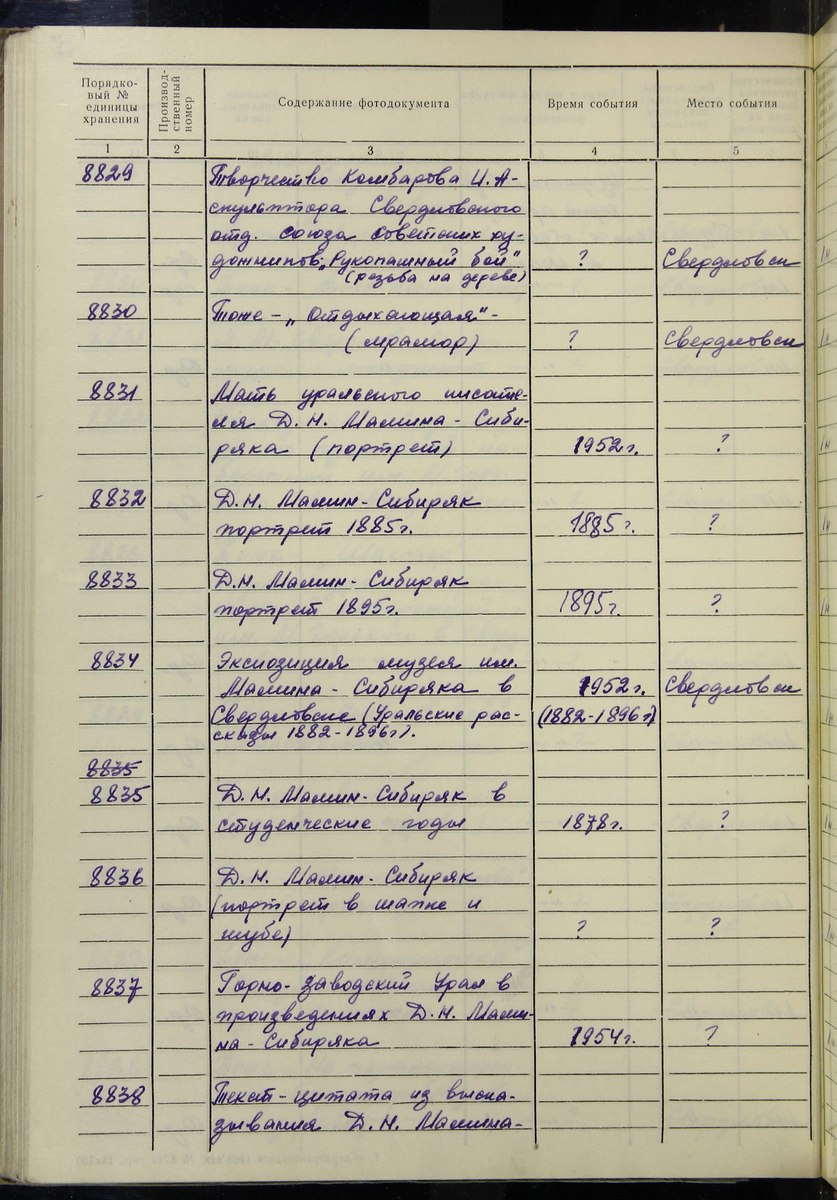 Порядко-
вый №
единицы
хранения
Производ-
ственный
номер
Содержание фотодокумента
Время события
Место события
1 2 3 4 5
8829 Творчество Камбарова И. А-
скульптора Свердловского
отд. союза советских ху-
дожников „Рукопашный бой" ? Свердловск
(резьба на дереве)
8830 Тоже - „Отдыхающая" -
(мрамор) ? Свердловск
8831 Мать уральского писате-
ля Д. Н. Мамина - Сиби-
ряка (портрет) 1952 г. ?
8832 Д. Н. Мамин - Сибиряк
портрет 1885 г. 1885 г. ?
8833 Д. Н. Мамин - Сибиряк
портрет 1895 г. 1895 г. ?
8834 Экспозиция музея им.
Мамина - Сибиряка в 1952 г. Свердловск
Свердловске (Уральские рас- (1882-1896 г)
сказы 1882 - 1896 г).
8835
8835 Д. Н. Мамин - Сибиряк в
студенческие годы 1878 г. ?
8836 Д. Н. Мамин - Сибиряк
(портрет в шапке и
шубе) ? ?
8837 Горно-заводский Урал в
произведениях Д. Н. Мами-
на - Сибиряка 1954 г. ?
8838 Текст - цитата из выска-
зывания Д. Н. Мамина-